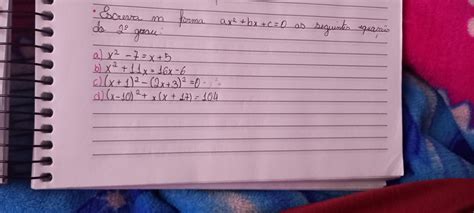 • Escreva na forma ax² + bx + c = 0 as seguintes equações
do 2º grau:
a) x² - 7 = x + 5
b) x² + 11x = 16x - 6
c) (x + 1)² - (2x + 3)² = 0
d) (x - 10)² + x(x + 17) = 104